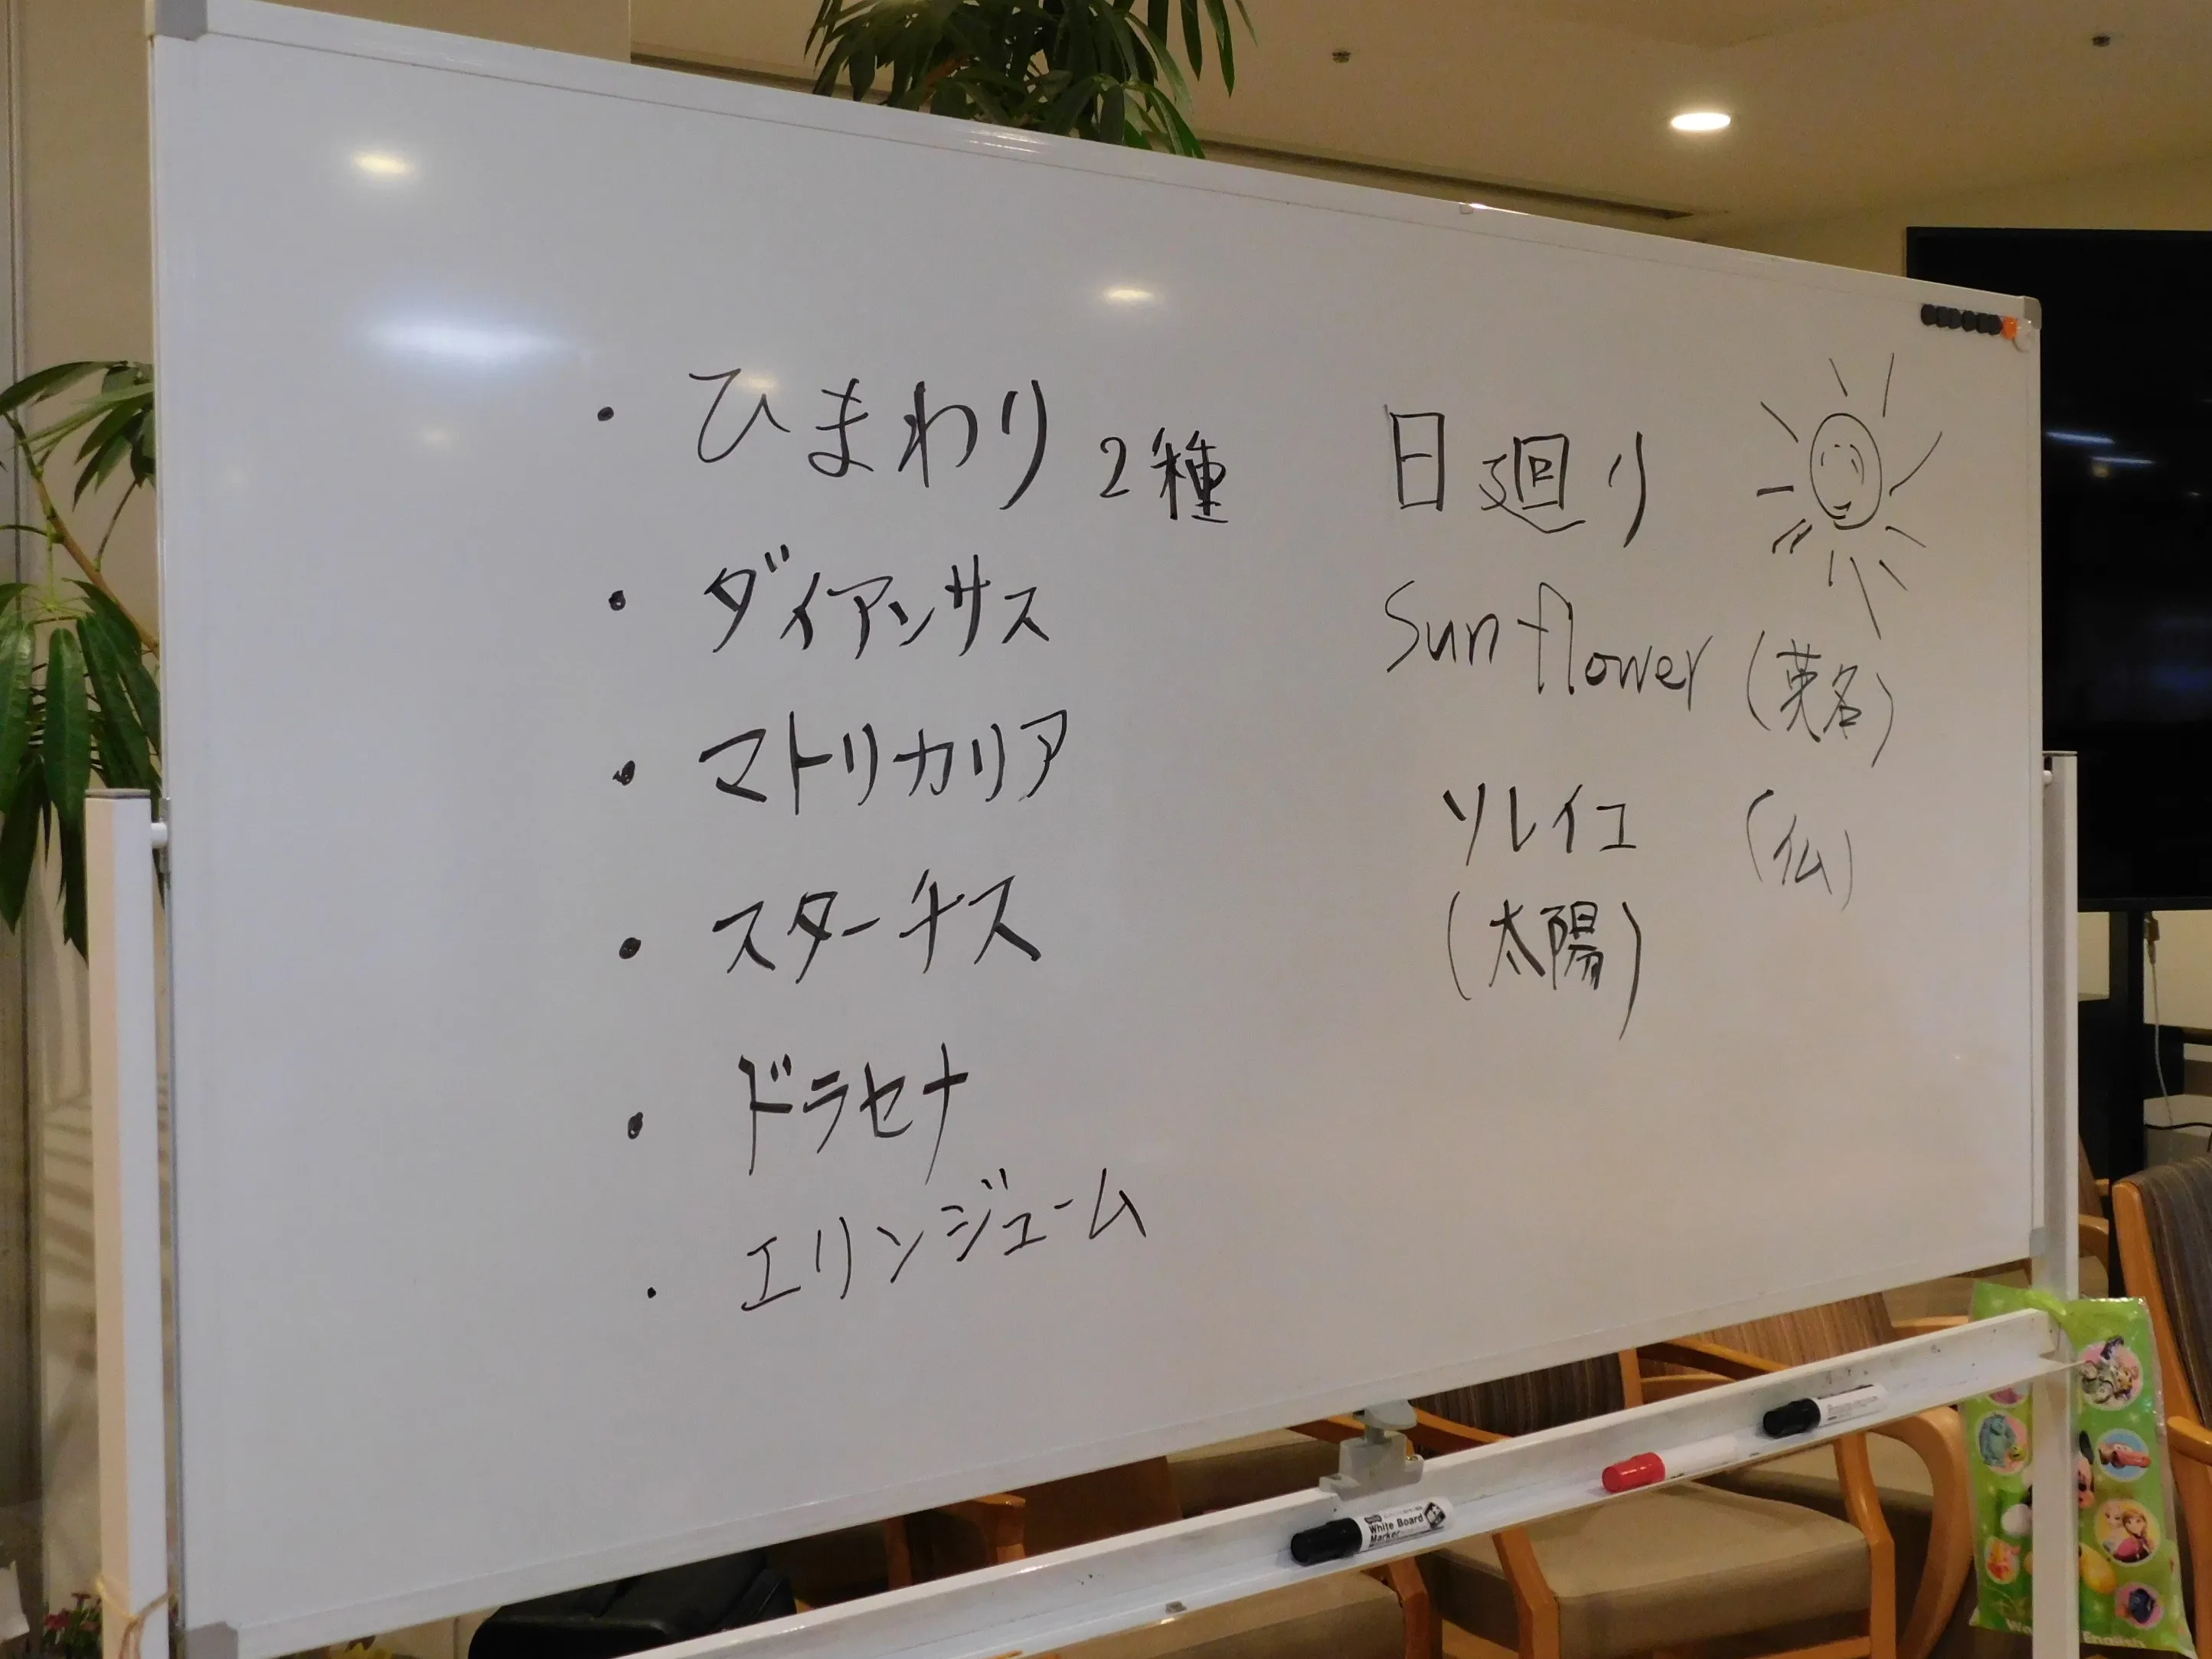 ・ひまわり 2種
・ダイアンサス
・マトリカリア
・スターチス
・ドラセナ
・エリンジューム
日廻り
Sunflower (英名)
ソレイユ (仏)
(太陽)
White Board
Marker
English